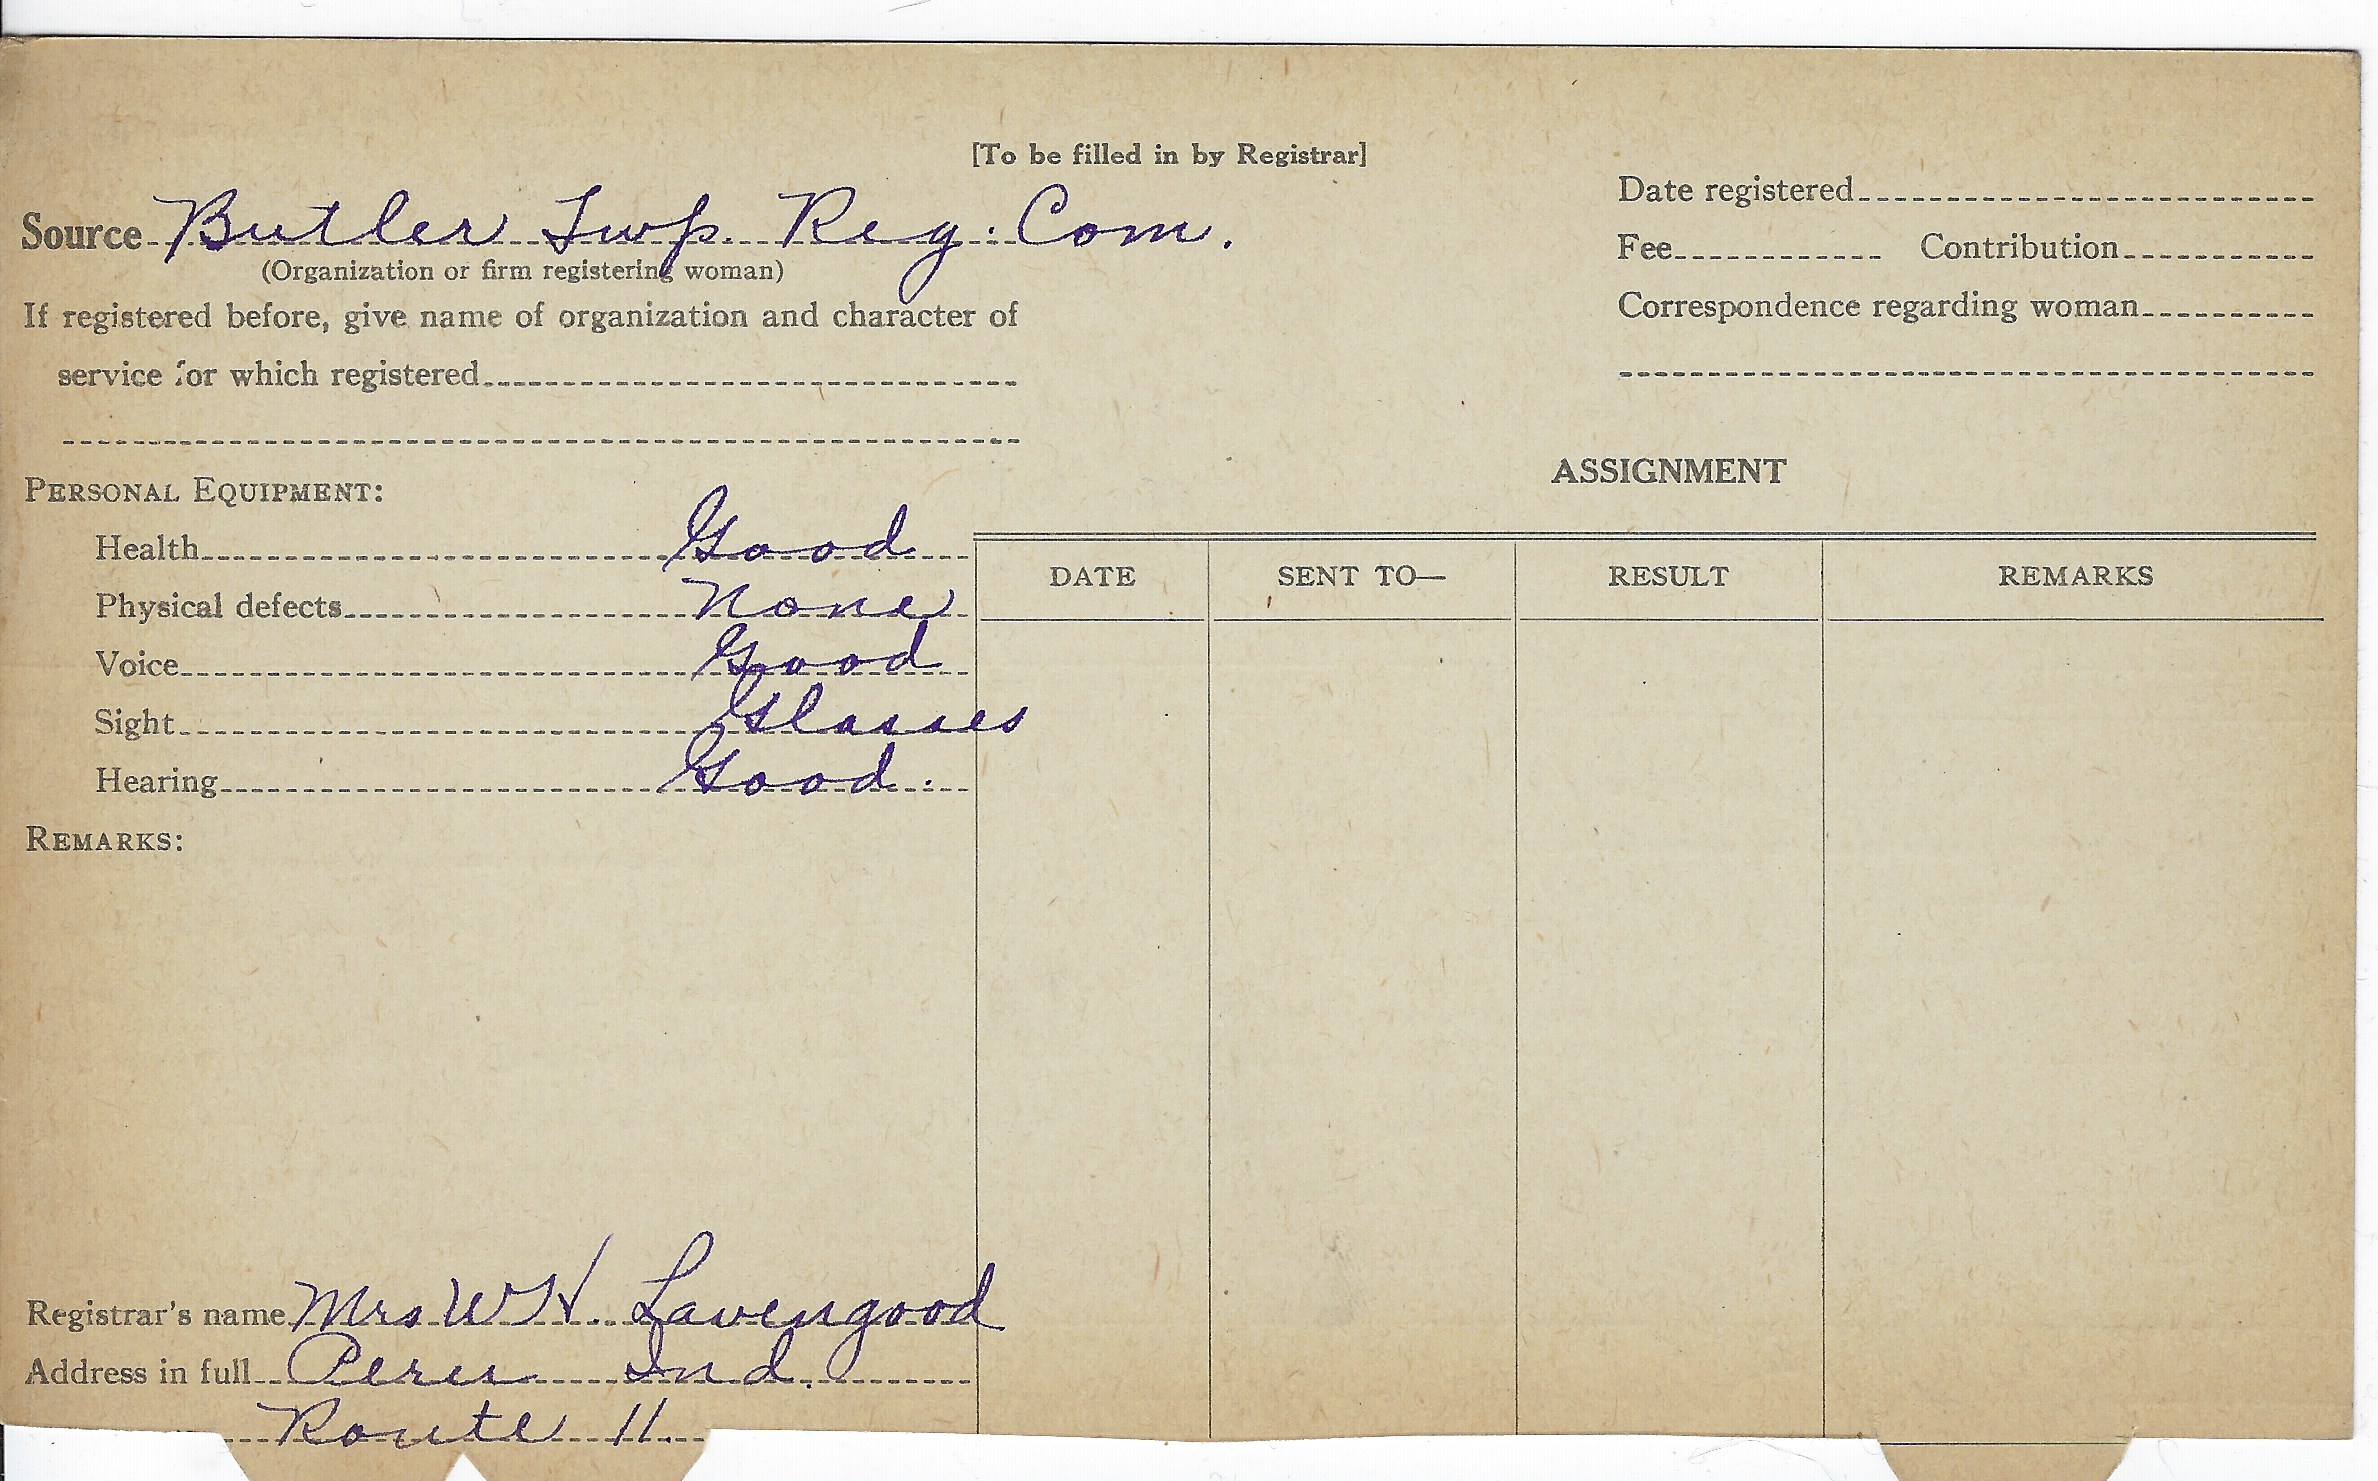 [To be filled in by Registrar]
Source Butler Twp. Reg. Com.
(Organization or firm registering woman)
If registered before, give name of organization and character of
service for which registered
Date registered
Fee Contribution
Correspondence regarding woman
PERSONAL EQUIPMENT:
Health Good
Physical defects None
Voice Good
Sight Glasses
Hearing Good.
REMARKS:
ASSIGNMENT
DATE SENT TO— RESULT REMARKS
Registrar's name Mrs W H. Lavengood
Address in full Peru Ind.
Route 11.